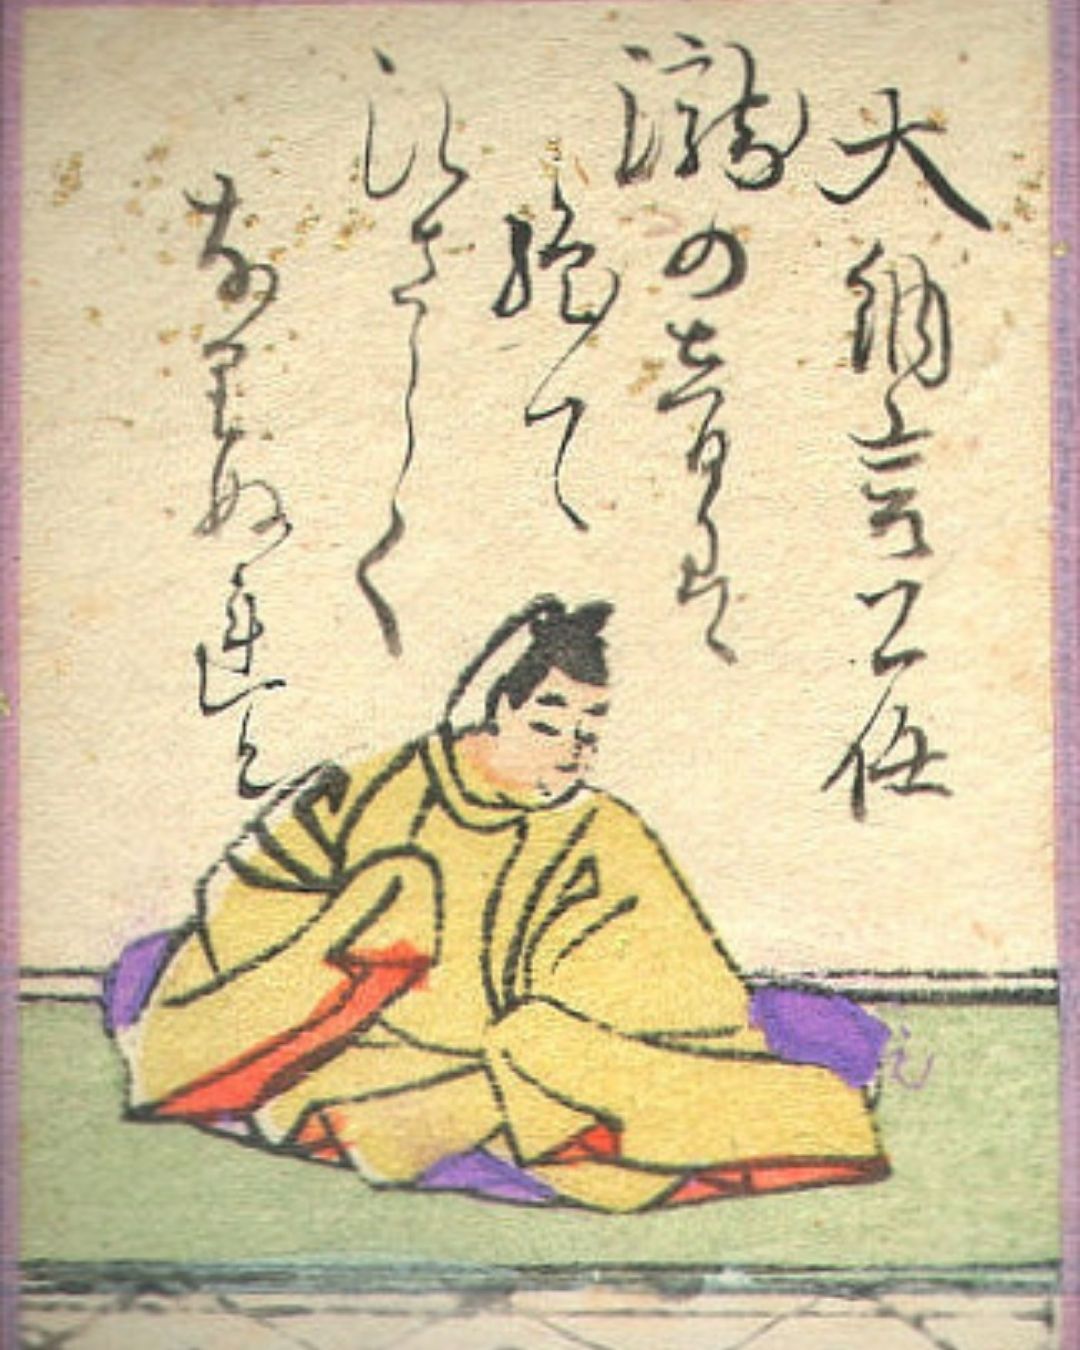 大納言公任
瀧の音は
絶て
ひさしく
なりぬれと